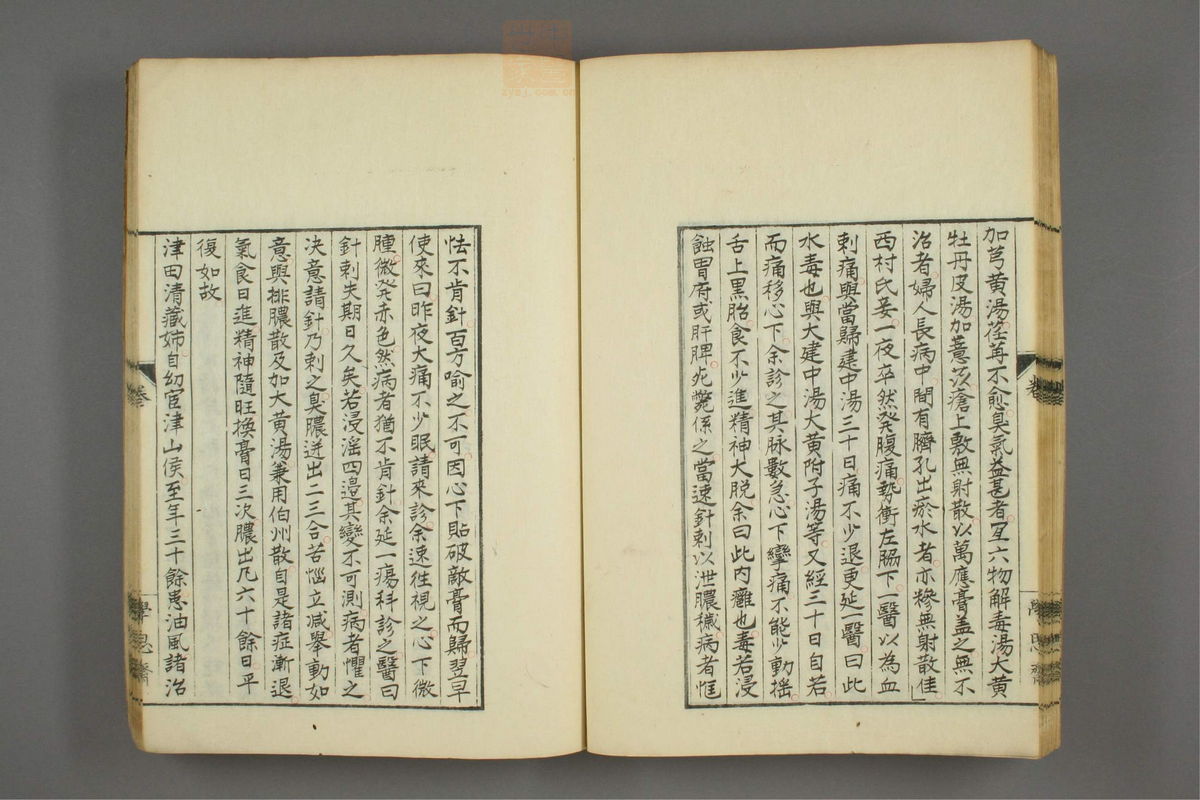 加芎黄湯荏苒不愈臭氣益甚者互六物解毒湯大黄
牡丹皮湯加薏苡瘡上敷無射散以萬應膏盖之無不
治者婦人長病中間有臍孔出瘀水者亦糝無射散佳
西村氏妾一夜卒然発腹痛勢衝左脇下一醫以為血
刺痛與當歸建中湯三十日痛不少退更延一醫曰此
水毒也與大建中湯大黄附子湯等又經三十日自若
而痛移心下余診之其脉數急心下攣痛不能少動揺
舌上黒胎食不少進精神大脱余曰此内癰也毒若浸
蝕胃府或肝脾死斃係之當速針刺以泄膿穢病者恇
怯不肯針百方喻之不可因心下貼破敵膏而歸翌早
使來曰昨夜大痛不少眠請來診余速徃視之心下微
腫微発赤色然病者猶不肯針余延一瘍科診之醫曰
針刺失期日久矣若浸淫四邉其變不可測病者懼之
决意請針乃刺之臭膿迸出二三合苦惱立減舉動如
意與排膿散及如大黄湯兼用伯州散自是諸症漸退
氣食日進精神隨旺換膏日三次膿出凡六十餘日平
復如故
津田清藏姉自幼宦津山侯至年三十餘患油風諸治
卷
學思齋
zysj.com.cn